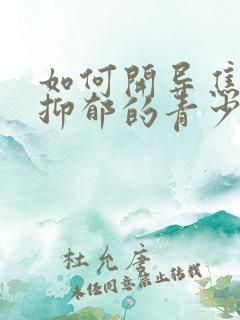 如何開导焦
抑郁的青少
杜允唐
未经同意禁止转载